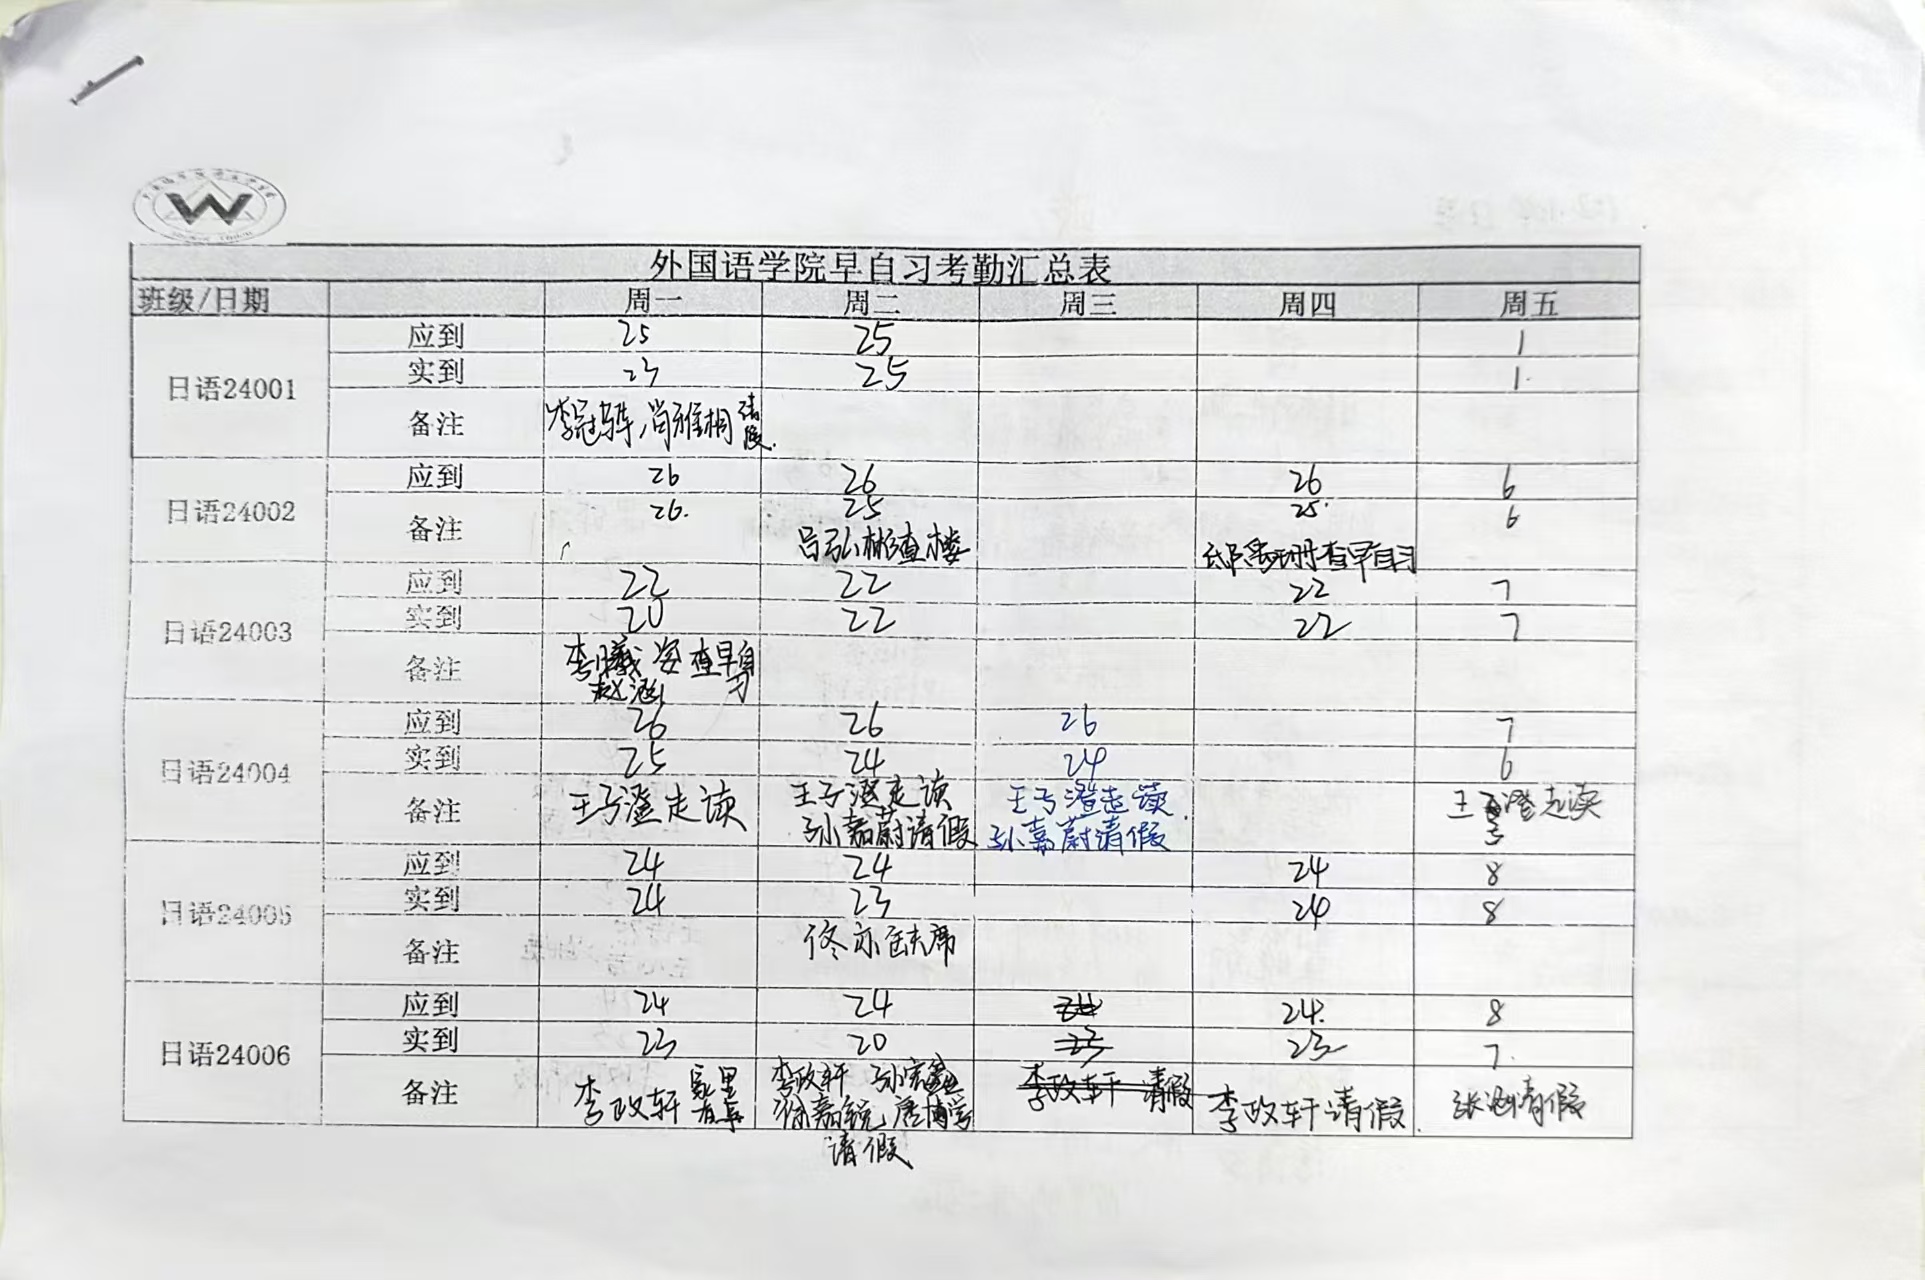 外国语学院早自习考勤汇总表
班级/日期 周一 周二 周三 周四 周五
日语24001 应到 25 25 1
实到 23 25 1
备注 李冠骅,尚雅桐 请假
日语24002 应到 26 26 26 6
26. 25 25. 6
备注 吕弘彬查楼 查早自习
日语24003 应到 22 22 22 7
实到 20 22 22 7
备注 李曦 查早自习
赵涵
日语24004 应到 26 26 26 7
实到 25 24 24 6
备注 王亏澄走读 王亏澄走读 王亏澄走读 王亏澄走读
孙嘉蔚请假 孙嘉蔚请假
日语24005 应到 24 24 24 8
实到 24 23 24 8
备注 佟亦缺席
日语24006 应到 24 24 24 24 8
实到 23 20 23 23 7
备注 李政轩 家里有事 李政轩 李政轩 请假 李政轩请假 请假
徐嘉锐,唐博学
请假